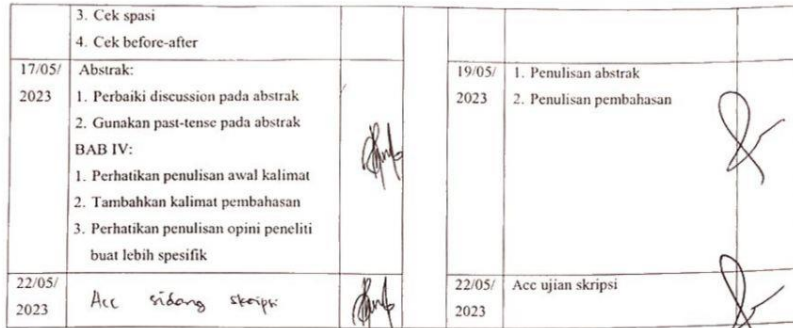 3. Cek spasi
4. Cek before-after
17/05/
2023
Abstrak:
1. Perbaiki discussion pada abstrak
2. Gunakan past-tense pada abstrak
BAB IV:
1. Perhatikan penulisan awal kalimat
2. Tambahkan kalimat pembahasan
3. Perhatikan penulisan opini peneliti
buat lebih spesifik
22/05/
2023
Acc sidang skripsi
19/05/
2023
1. Penulisan abstrak
2. Penulisan pembahasan
22/05/
2023
Acc ujian skripsi